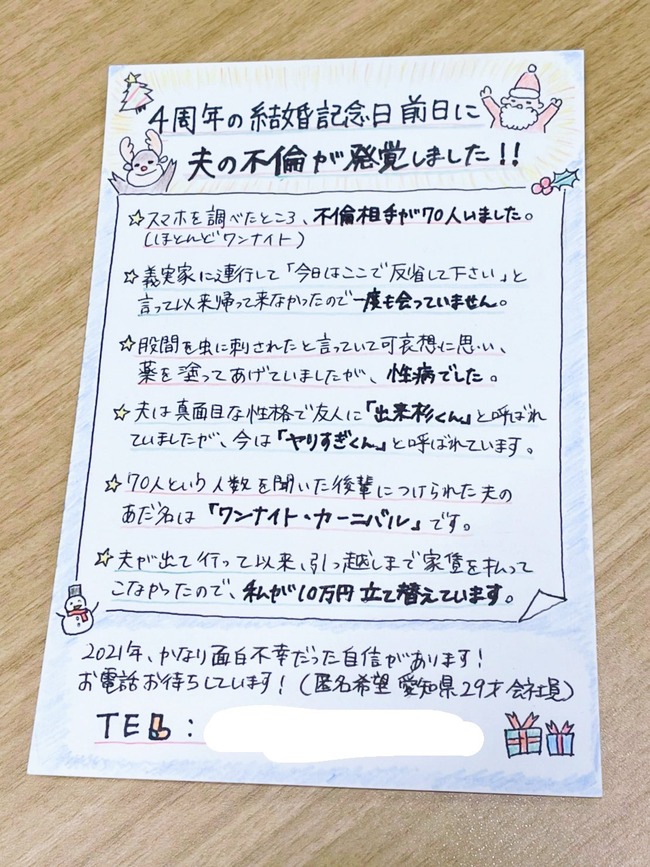 4周年の結婚記念日前日に
夫の不倫が発覚しました!!
☆スマホを調べたところ、不倫相手が70人いました。
(ほとんどワンナイト)
☆義実家に連行して「今日はここで反省して下さい」と
言って以来帰って来なかったので一度も会っていません。
☆股間を虫に刺されたと言っていて可哀想に思い、
薬を塗ってあげていましたが、性病でした。
☆夫は真面目な性格で友人に「出来杉くん」と呼ばれ
ていましたが、今は「ヤリすぎくん」と呼ばれています。
☆70人という人数を聞いた後輩につけられた夫の
あだ名は「ワンナイト・カーニバル」です。
☆夫が出て行って以来、引っ越しまで家賃を払って
こなかったので、私が10万円立て替えています。
2021年、かなり面白不幸だった自信があります!
お電話お待ちしています!(匿名希望 愛知県29才 会社員)
TEL: